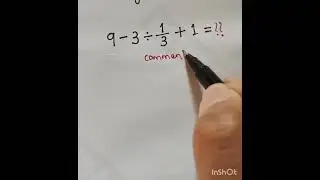 9 - 3 ÷ 1/3 + 1 = ??
commen
InShOt